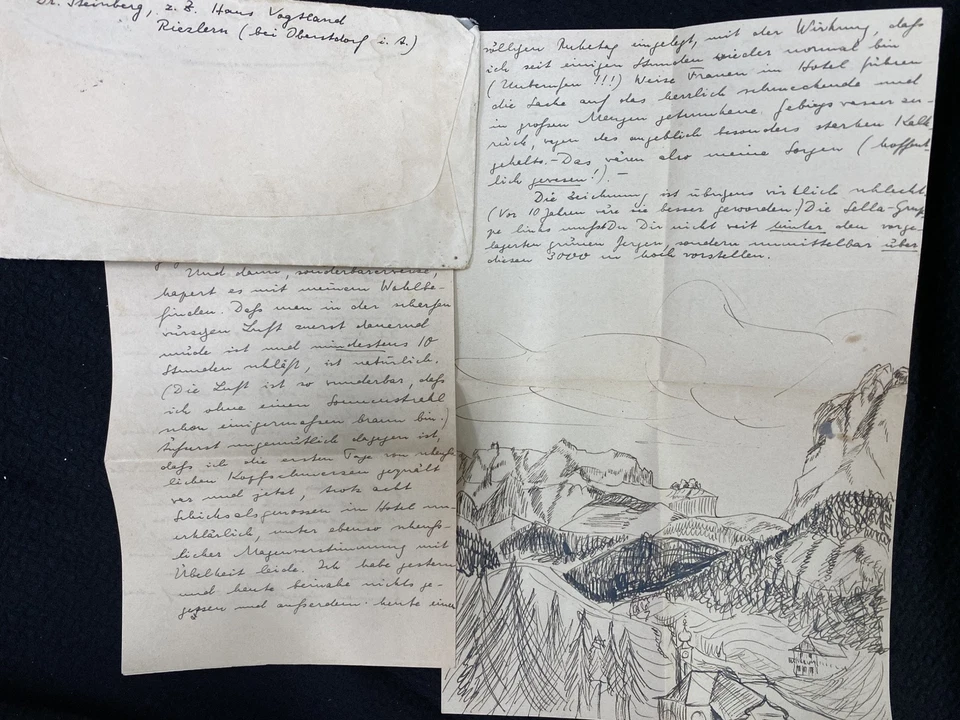 Dr. Steinberg, z. Z. Haus Vogtland
Riezlern (bei Oberstdorf i. A.)
Und dann, sonderbarerweise,
hapert es mit meinem Wohlbe-
finden. Daß man in der scharfen
würzigen Luft zuerst dauernd
müde ist und mindestens 10
Stunden schläft, ist natürlich.
(Die Luft ist so wunderbar, daß
ich ohne einen Sonnenstrahl
schon einigermassen braun bin.)
Äußerst ungemütlich dagegen ist,
daß ich die ersten Tage von scheuß-
lichen Kopfschmerzen gequält
war und jetzt, trotz acht
Schicksalsgenossen im Hotel un-
erklärlich, unter ebenso scheuß-
licher Magenverstimmung mit
Übelkeit leide. Ich habe gestern
und heute beinahe nichts ge-
gessen und außerdem heute einen
völligen Ruhetag eingelegt, mit der Wirkung, daß
ich seit einigen Stunden wieder normal bin
(Unberufen!!!) Weise Frauen im Hotel führen
die Sache auf das herrlich schmeckende und
in großen Mengen getrunkene Gebirgswasser zu-
rück, wegen des angeblich besonders starken Kalk-
gehalts. - Das wären also meine Sorgen (hoffent-
lich gewesen!). -
Die Zeichnung ist übrigens wirklich schlecht
(Vor 10 Jahren wäre sie besser geworden.) Die Sella-Grup-
pe links mußt Du Dir nicht weit hinter den vorge-
lagerten grünen Bergen, sondern unmittelbar über
diesen 3000 m hoch vorstellen.